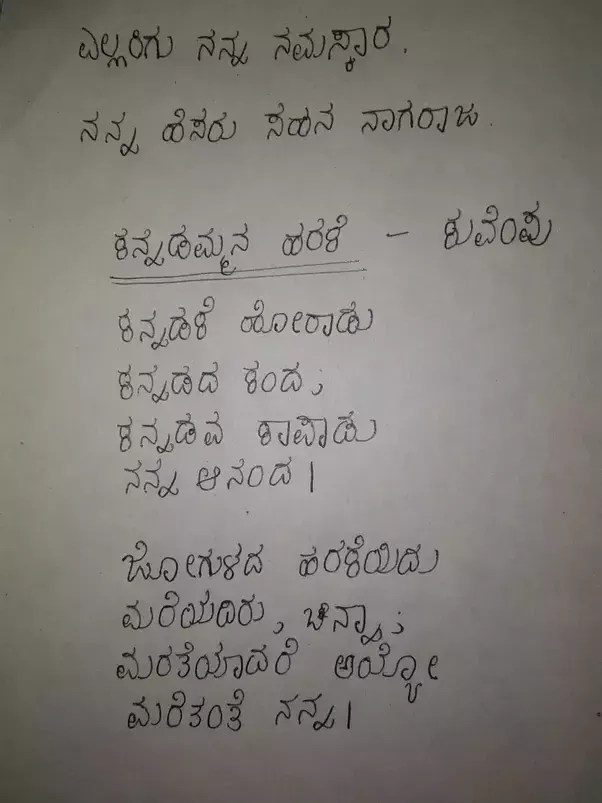 ಎಲ್ಲರಿಗು ನನ್ನ ನಮಸ್ಕಾರ.
ನನ್ನ ಹೆಸರು ಸಹನ ನಾಗರಾಜ.
ಕನ್ನಡಮ್ಮನ ಹರಕೆ - ಕುವೆಂಪು
ಕನ್ನಡಕೆ ಹೋರಾಡು
ಕನ್ನಡದ ಕಂದ;
ಕನ್ನಡವ ಕಾಪಾಡು
ನನ್ನ ಆನಂದ।
ಜೋಗುಳದ ಹರಕೆಯಿದು
ಮರೆಯದಿರು, ಚಿನ್ನಾ;
ಮರತೆಯಾದರೆ ಅಯ್ಯೋ
ಮರೆತಂತೆ ನನ್ನ।